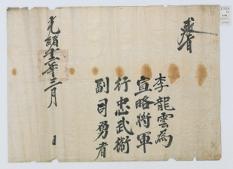 敎旨
李龍雲爲
宣略將軍
行忠武衛
副司勇者
光緖 年三月 日